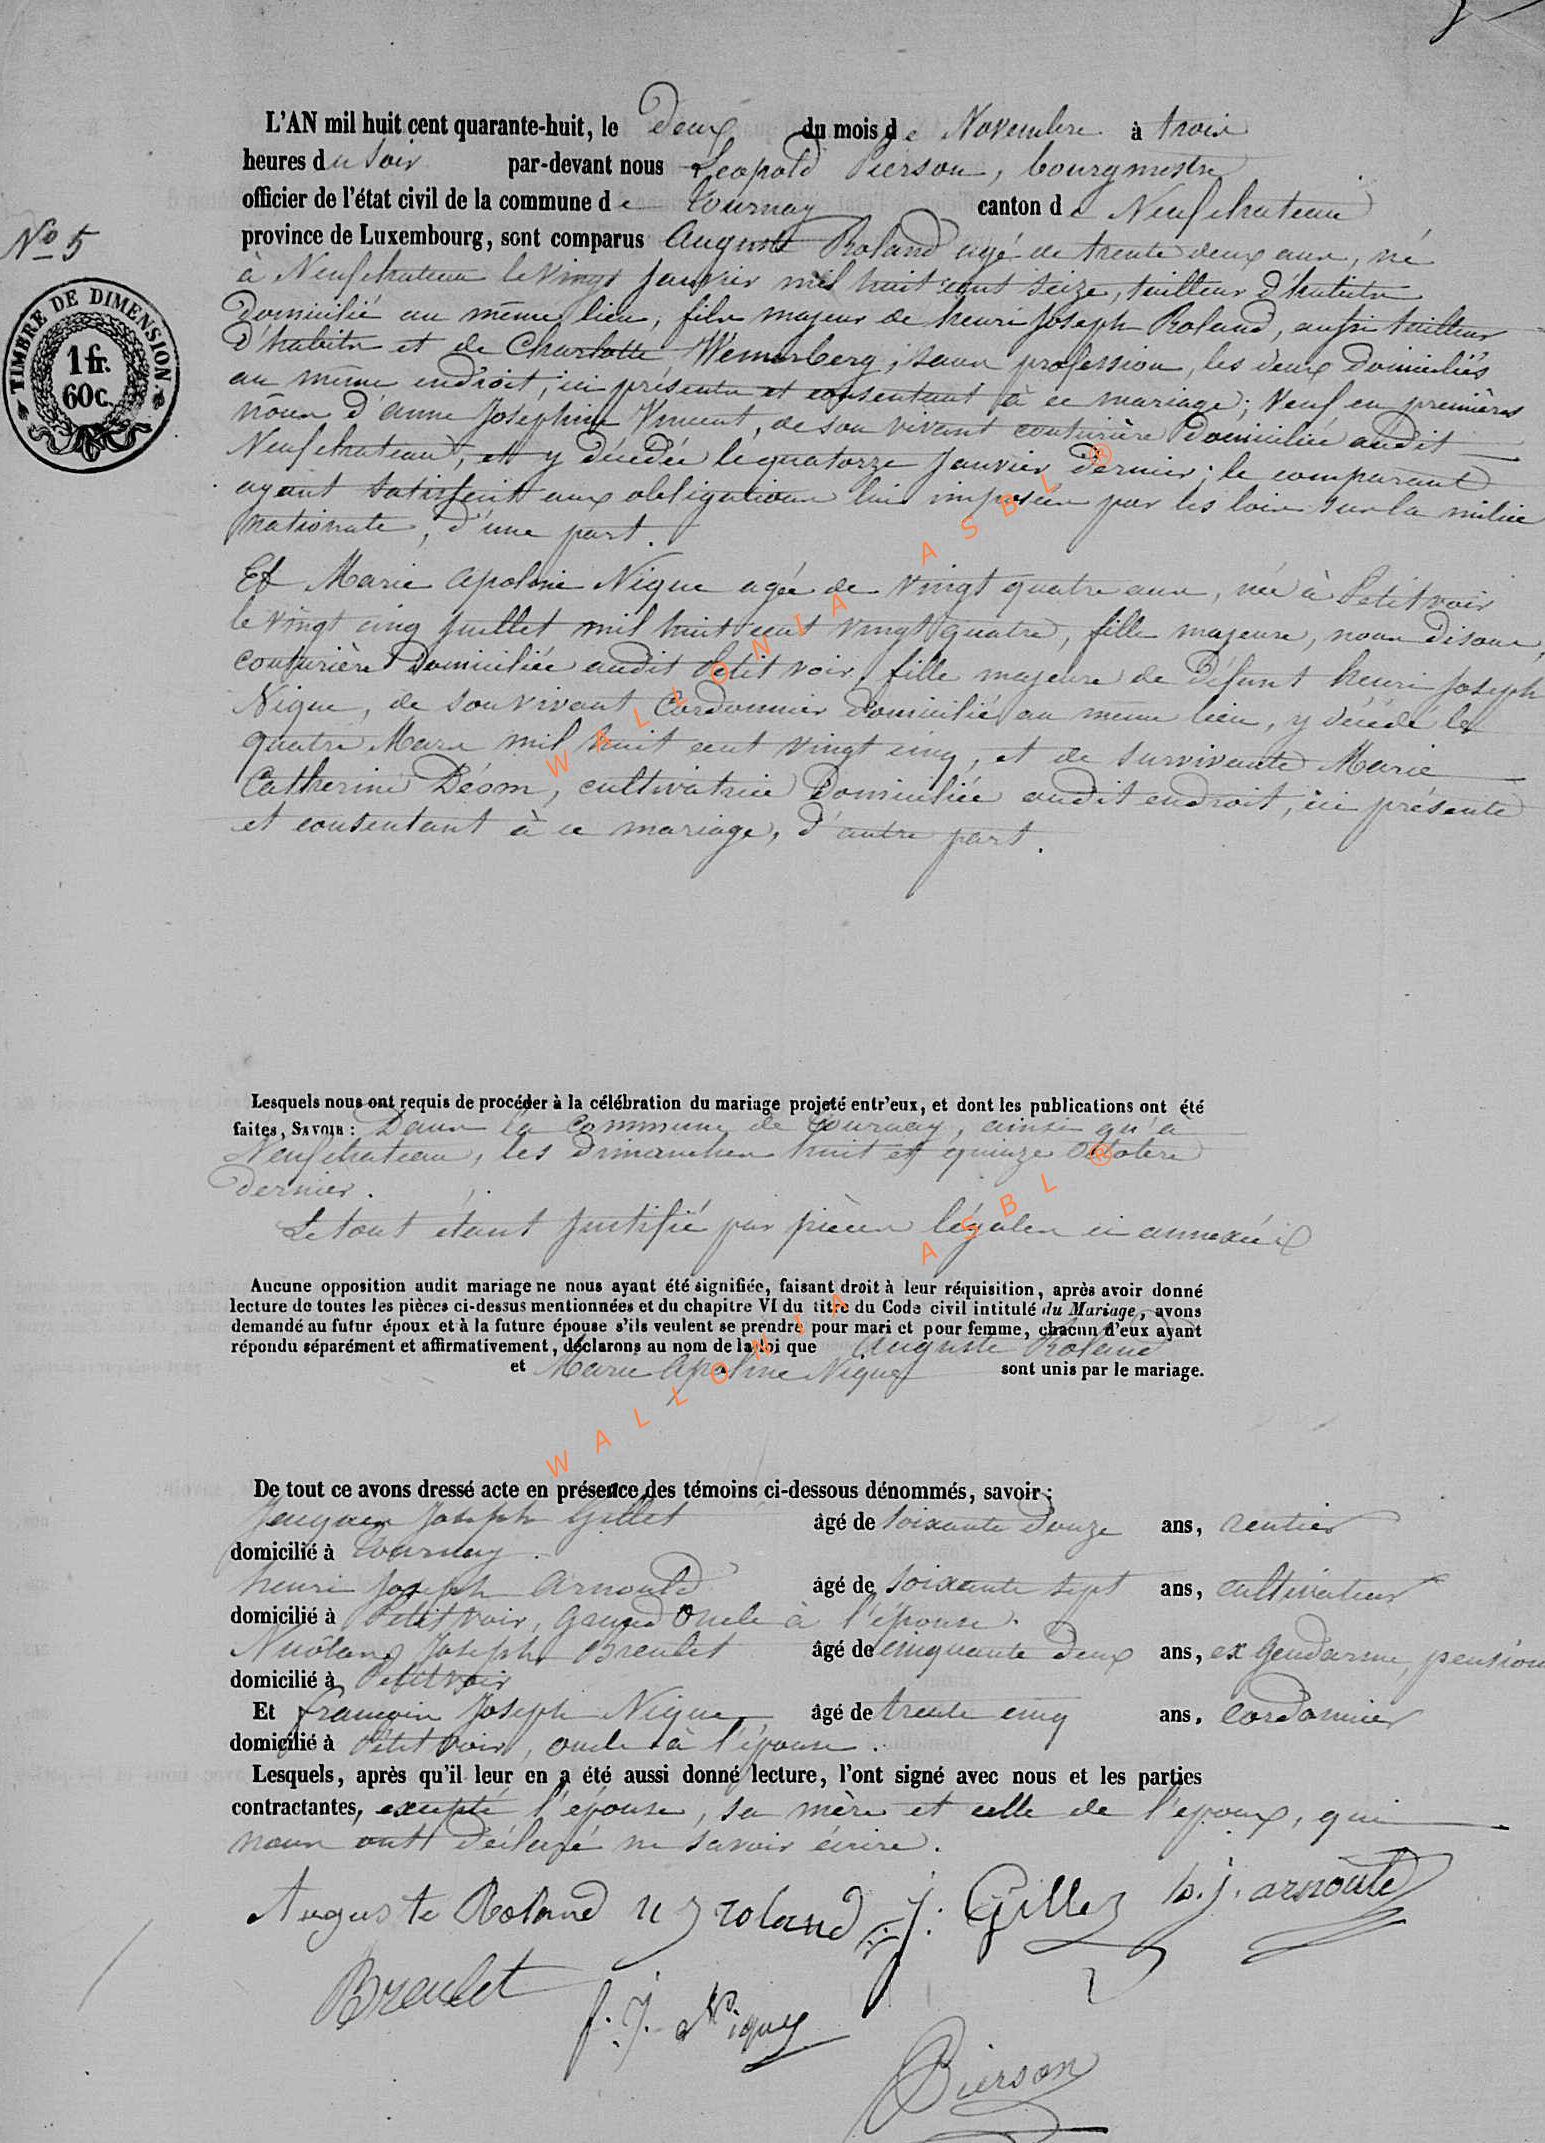 L'AN mil huit cent quarante-huit, le Deux du mois de Novembre à trois
heures du soir par-devant nous Leopold Pierson, bourgmestre
officier de l'état civil de la commune de Tournay canton de Neufchateau
N° 5
province de Luxembourg, sont comparus Auguste Roland agé de trente deux ans, né
à Neufchateau le vingt Janvier mil huit cent seize, tailleur d'habits
TIMBRE DE DIMENSION.
1 fr.
60 c.
domicilié au même lieu, fils majeur de henri Joseph Roland, aussi tailleur
d'habits et de Charlotte Wemerberg, sans profession, les deux domiciliés
au même endroit, ici présents et consentant à ce mariage; Veuf en premières
nôces d'anne Joséphine Vincent, de son vivant couturière domiciliée audit
Neufchateau, et y décédée le quatorze Janvier dernier; le comparant
ayant satisfait aux obligations lui imposées par les lois sur la milice
nationale, d'une part.
Et Marie Apoline Nique agée de vingt quatre ans, née à Petitvoir
le vingt cinq Juillet mil huit cent vingt quatre, fille majeure, nous disons,
couturière domiciliée audit Petitvoir, fille majeure de défunt henri Joseph
Nique, de son vivant Cordonnier domicilié au même lieu, y décédé le
quatre Mars mil huit cent vingt cinq, et de survivante Marie
Catherine Déom, cultivatrice domiciliée audit endroit, ici présente
et consentant à ce mariage, d'autre part.
Lesquels nous ont requis de procéder à la célébration du mariage projeté entr'eux, et dont les publications ont été
faites, SAVOIR: Dans la Commune de Tournay, ainsi qu'à
Neufchateau, les dimanches huit et quinze Octobre
dernier.
Le tout étant justifié par pièces légales ci annexées
Aucune opposition audit mariage ne nous ayant été signifiée, faisant droit à leur réquisition, après avoir donné
lecture de toutes les pièces ci-dessus mentionnées et du chapitre VI du titre du Code civil intitulé du Mariage, avons
demandé au futur époux et à la future épouse s'ils veulent se prendre pour mari et pour femme, chacun d'eux ayant
répondu séparément et affirmativement, déclarons au nom de la loi que Auguste Roland
et Marie Apoline Nique sont unis par le mariage.
De tout ce avons dressé acte en présence des témoins ci-dessous dénommés, savoir:
Jacques Joseph Gillet âgé de soixante douze ans, rentier
domicilié à Tournay.
henri Joseph Arnould âgé de soixante sept ans, cultivateur
domicilié à Petitvoir, grand oncle à l'épouse.
Nicolas Joseph Breulet âgé de cinquante deux ans, ex gendarme, pension
domicilié à Petitvoir
Et François Joseph Nique âgé de trente cinq ans, Cordonnier
domicilié à Petitvoir, oncle à l'épouse.
Lesquels, après qu'il leur en a été aussi donné lecture, l'ont signé avec nous et les parties
contractantes, excepté l'épouse, sa mère et celle de l'époux, qui
nous ont déclaré ne savoir écrire.
Auguste Roland h j roland j. j. Gillet h. j. arnould
Breulet f. J. Nique
Pierson
WALLONIA ASBL ®
WALLONIA ASBL ®